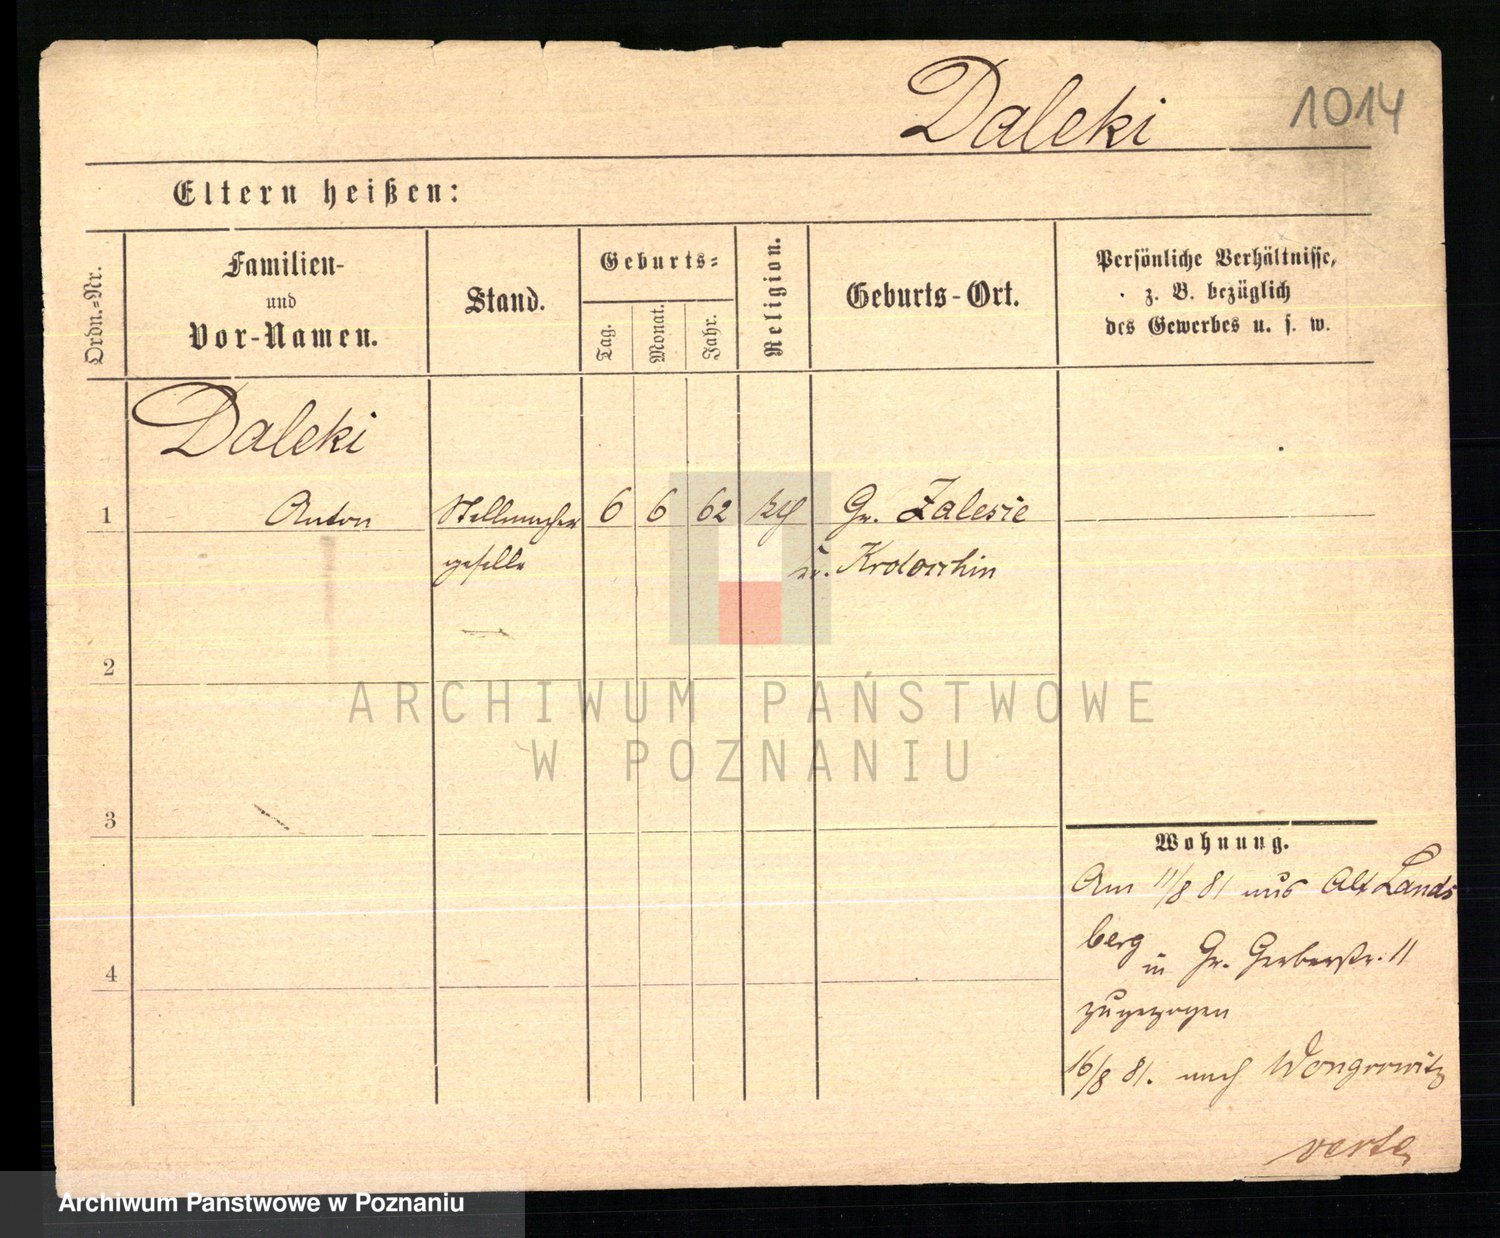 Daleki 1014
Eltern heißen:
Ordn.-Nr.
Familien-
und
Vor-Namen.
Stand.
Geburts-
Tag.
Monat.
Jahr.
Religion.
Geburts-Ort.
Persönliche Verhältnisse,
z. B. bezüglich
des Gewerbes u. s. w.
Daleki
1 Anton Stellmacher 6 6 62 kth Gr. Zalesie
geselle Kr. Krotoschin
2
3
4
Wohnung.
Am 11/8 81 aus Alt Lands
berg in Gr. Gerberstr. 11
zugezogen
16/8 81. nach Wongrowitz
verte
ARCHIWUM PAŃSTWOWE
W POZNANIU
Archiwum Państwowe w Poznaniu